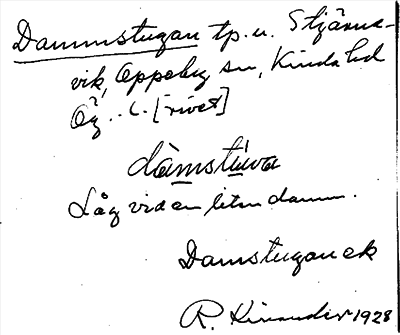 Dammstugan tp. u. Stjärns-
vik, Oppeby sn, Kinda hd
Ög. .L. [rivet]
dàmstùva
Låg vid en liten damm.
Damstugan ek
R. Kinander 1928